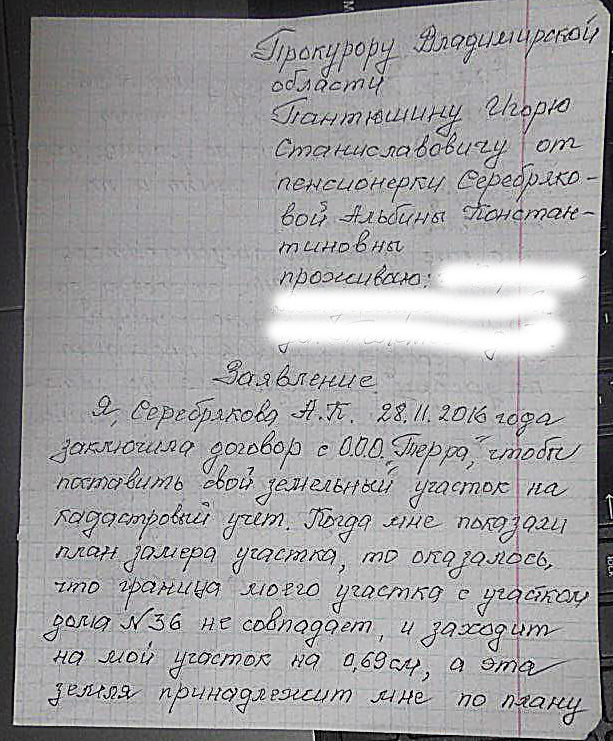 Прокурору Владимирской
области
Пантюшину Игорю
Станиславовичу от
пенсионерки Серебряко-
вой Альбины Констан-
тиновны
проживаю:
Заявление
Я, Серебрякова А.К. 28.11.2016 года
заключила договор с О.О.О. "Терра", чтобы
поставить свой земельный участок на
кадастровый учет. Когда мне показали
план замера участка, то оказалось,
что граница моего участка с участком
дома №36 не совпадает, и заходит
на мой участок на 0,69см, а эта
земля принадлежит мне по плану